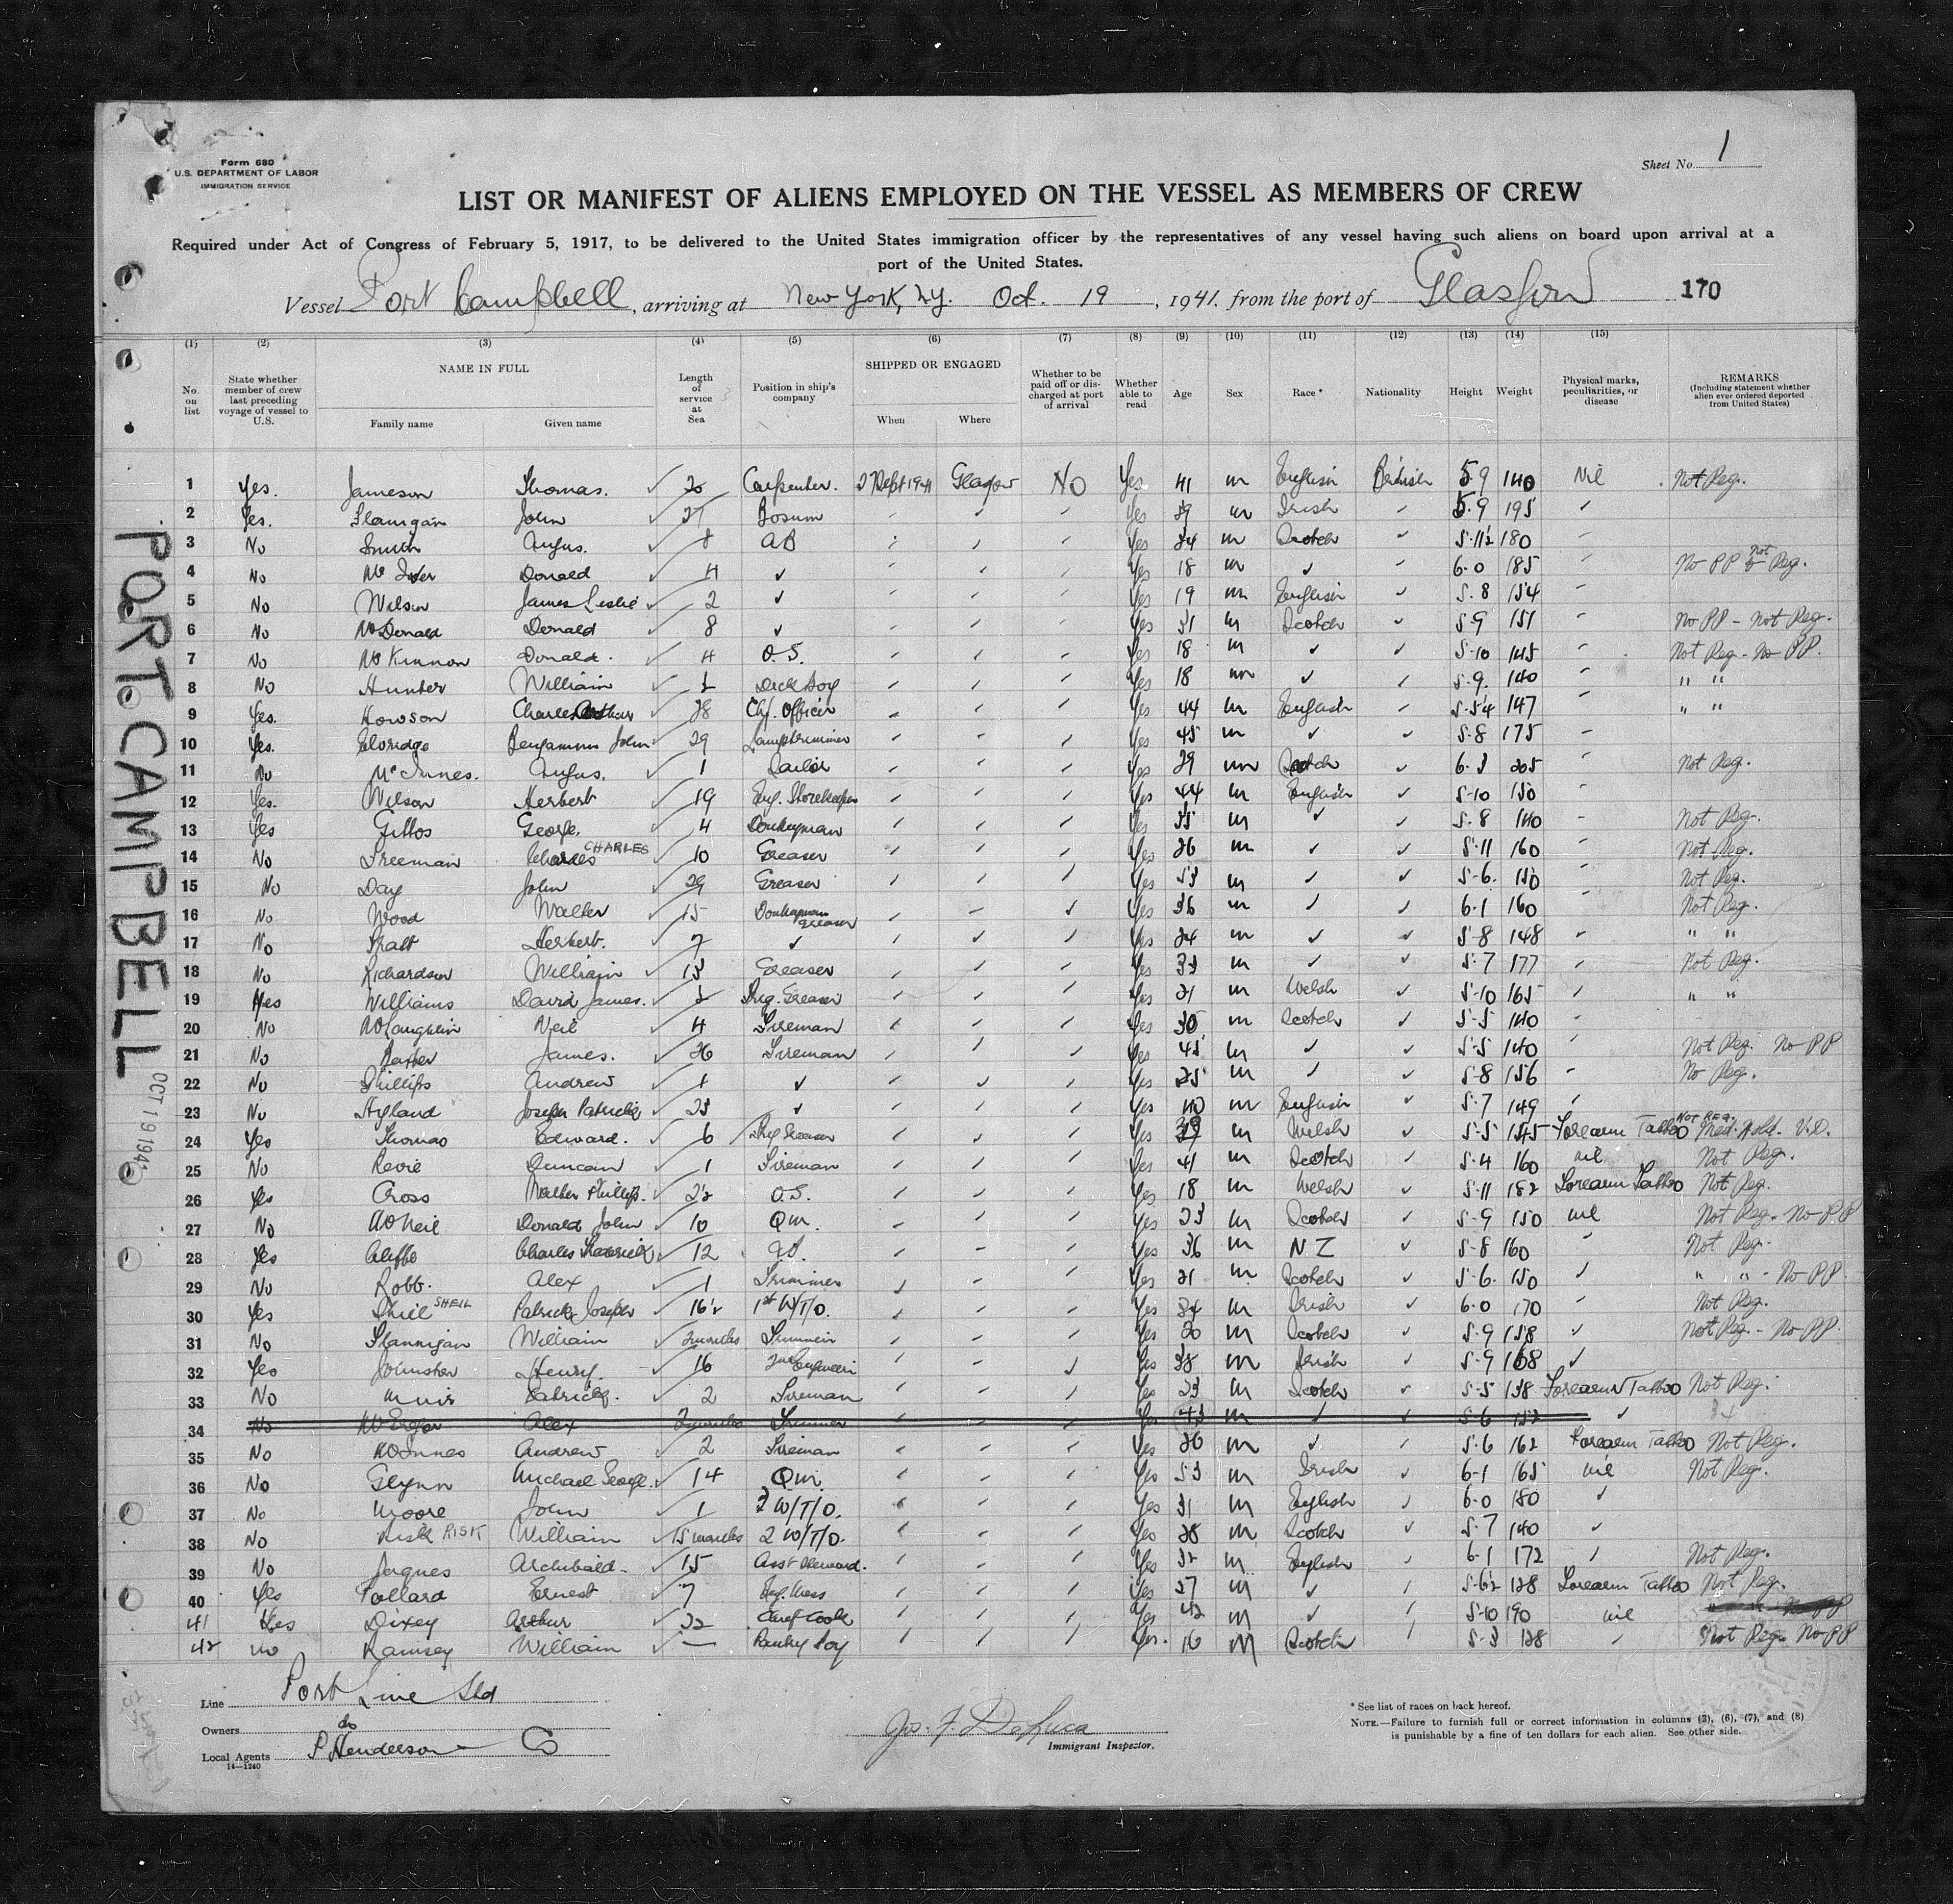 Form 680
U.S. DEPARTMENT OF LABOR
IMMIGRATION SERVICE
Sheet No. 1
LIST OR MANIFEST OF ALIENS EMPLOYED ON THE VESSEL AS MEMBERS OF CREW
Required under Act of Congress of February 5, 1917, to be delivered to the United States immigration officer by the representatives of any vessel having such aliens on board upon arrival at a
port of the United States.
Vessel Port Campbell, arriving at New York, NY. Oct. 19, 1941. from the port of Glasgow 170
(1) (2) (3) (4) (5) (6) (7) (8) (9) (10) (11) (12) (13) (14) (15)
No. on list State whether member of crew last preceding voyage of vessel to U.S. NAME IN FULL Family name Given name Length of service at Sea Position in ship's company SHIPPED OR ENGAGED When Where Whether to be paid off or discharged at port of arrival Whether able to read Age Sex Race* Nationality Height Weight Physical marks, peculiarities, or disease REMARKS (Including statement whether alien ever ordered deported from United States)
1 Yes. Jameson Thomas. ✓ 20 Carpenter. Sept 1941 Glasgow No Yes 41 m English British 5 9 140 Nil Not Reg.
2 Yes. Flanigan John ✓ 27 Bosum Yes 39 m Irish 5.9 195
3 No Smith Angus. ✓ 8 AB Yes 24 m Scotch 5-11½ 180
4 No Donald ✓ 4 ✓ Yes 18 m ✓ 6-0 185 No PP Not Reg.
5 No Wilson James Leslie ✓ 2 ✓ Yes 19 m English 5-8 154
6 No McDonald Donald ✓ 8 ✓ Yes 31 m Scotch 5-9 151 No PP - Not Reg.
7 No McKinnon Donald. ✓ 4 O.S. Yes 18 m ✓ 5-10 145 Not Reg - No PP.
8 No Hunter William ✓ ½ Deck Boy Yes 18 m ✓ 5-9. 140 " "
9 Yes. Howson Charles Arthur ✓ 28 Chf. Officer Yes 44 m English 5-5¼ 147 " "
10 Yes. Benjamin John ✓ 29 Lamptrimmer Yes 45 m ✓ 5-8 175
11 No McInnes. Angus. ✓ 1 Sailor Yes 29 m Scotch 6-3 205 Not Reg.
12 Yes. Wilson Herbert ✓ 19 Eng. Storekeeper Yes 44 m English 5-10 150
13 Yes George. ✓ 4 Donkeyman Yes 35 m ✓ 5-8 140 Not Reg.
14 No Freeman Charles CHARLES ✓ 10 Greaser Yes 26 m ✓ 5-11 160 Not Reg.
15 No Day John ✓ 29 Greaser Yes 53 m ✓ 5-6. 150 Not Reg.
16 No Wood Walter ✓ 15 Donkeyman Greaser Yes 36 m ✓ 6-1 160 Not Reg.
17 No Pratt Herbert. ✓ 7 ✓ Yes 24 m ✓ 5-8 148 " "
18 No Richardson William ✓ 13 Greaser Yes 33 m ✓ 5-7 177 Not Reg.
19 Yes Williams David James. ✓ Greaser Yes 21 m Welsh 5-10 165 " "
20 No McLaughlin Neil ✓ 4 Fireman Yes 30 m Scotch 5-5 140
21 No James. ✓ 26 Fireman Yes 45 m ✓ 5-5 140 Not Reg. No PP
22 No Phillips Andrew ✓ 1 ✓ Yes 25 m ✓ 5-8 156 No Reg.
23 No Hyland Joseph Patrick ✓ 23 ✓ Yes 40 m English 5-7 149
24 Yes Thomas Edward. ✓ 6 Greaser Yes 39 m Welsh 5-5 145 Forearm Tattoo NOT REG. Med. Hold. V.D.
25 No Revie Duncan ✓ 1 Fireman Yes 41 m Scotch 5-4 160 nil Not Reg.
26 Yes Cross Walter Phillip. ✓ 2½ O.S. Yes 18 m Welsh 5-11 182 Forearm Tattoo Not Reg.
27 No McNeil Donald John ✓ 10 Qm. Yes 23 m Scotch 5-9 150 nil Not Reg. No PP
28 Yes Charles Frederick ✓ 12 Yes 36 m N Z 5-8 160 Not Reg.
29 No Robb. Alex ✓ 1 Trimmer Yes 21 m Scotch 5-6. 150 " " - No PP.
30 Yes Shiel SHEIL Patrick Joseph ✓ 16½ 1st W/T/O. Yes 34 m Irish 6-0 170 Not Reg.
31 No Flannigan William ✓ months Trimmer Yes 20 m Scotch 5-9 158 Not Reg. - No PP.
32 Yes Johnston Henry. ✓ 16 2nd Engineer Yes 38 m Irish 5-9 168
33 No Muir Patrick. ✓ 2 Fireman Yes 23 m Scotch 5-5 138 Forearm Tattoo Not Reg.
34 No Alex months Trimmer Yes 43 m ✓ 5-6 152
35 No McInnes Andrew ✓ 2 Fireman Yes 20 m ✓ 5-6 162 Forearm Tattoo Not Reg.
36 No Glynn Michael George. ✓ 14 Qm. Yes 53 m Irish 6-1 165 nil Not Reg.
37 No Moore John ✓ 1 3 W/T/O. Yes 31 m English 6-0 180
38 No Risk RISK William ✓ 15 months 2 W/T/O. Yes 28 m Scotch 5-7 140
39 No Jaques Archibald. ✓ 15 Asst Steward. Yes 32 m English 6-1 172 Not Reg.
40 Yes Pollard Ernest ✓ 7 Eng. Mess Yes 27 m ✓ 5-6½ 128 Forearm Tattoo Not Reg.
41 Yes Dixey Arthur ✓ 22 Chief Cook Yes 42 m ✓ 5-10 190 nil
42 No Ramsey William ✓ — Pantry Boy Yes. 16 m Scotch 5-3 128 Not Reg. No PP
PORT CAMPBELL
OCT 19 194
Line Port Line Ltd
Owners do
Local Agents P Henderson Co
14—1240
Jos. F. DeLuca
Immigrant Inspector.
* See list of races on back hereof.
NOTE.—Failure to furnish full or correct information in columns (3), (6), (7), and (8)
is punishable by a fine of ten dollars for each alien. See other side.